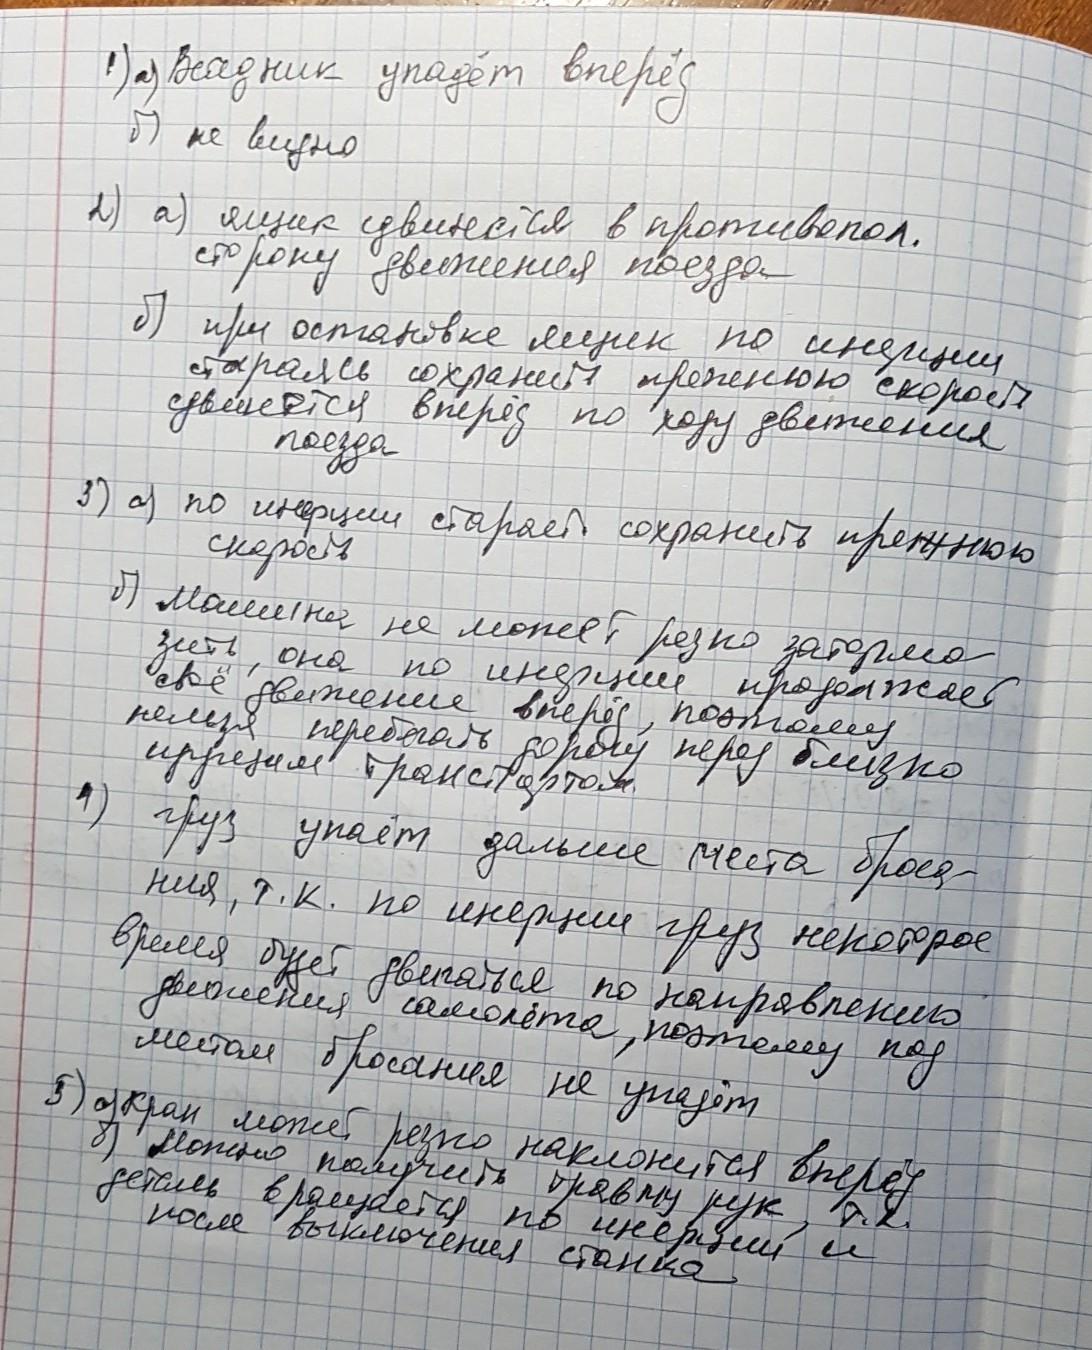 1) а) Всадник упадёт вперёд
б) не видно
2) а) ящик сдвинется в противопол.
сторону движения поезда
б) при остановке ящик по инерции
стараясь сохранить прежнюю скорость
сдвинется вперёд по ходу движения
поезда
3) а) по инерции старает. сохранить прежнюю
скорость
б) Машина не может резко затормо-
зить, она по инерции продолжает
своё движение вперёд, поэтому
нельзя перебегать дорогу перед близко
идущим транспортом.
4) груз упаёт дальше места броса-
ния, т.к. по инерции груз некоторое
время будет двигаться по направлению
движения самолёта, поэтому под
местом бросания не упадёт
5) а) Кран может резко наклонится вперёд
б) Можно получить травму рук, т.к.
деталь вращается по инерции и
после выключения станка